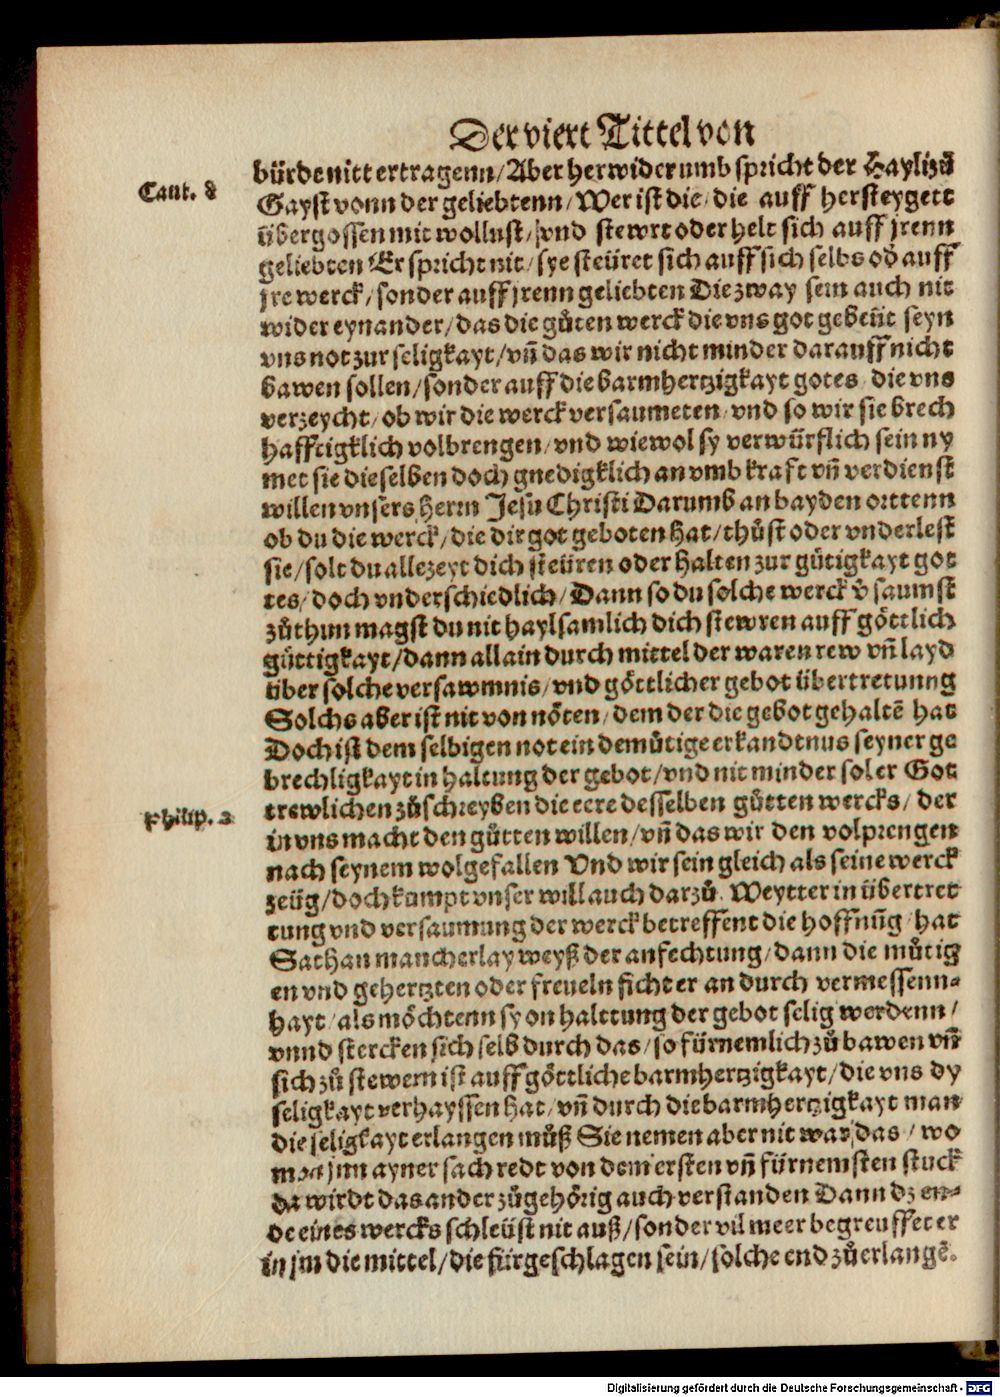 Der viert Tittel von
bürde nitt ertragenn/ Aber herwiderumb spricht der Haylig
Cant. 8
Gayst vonn der geliebtenn/ Wer ist die/ die auff hersteygett
übergossen mit wollust/ vnd stewrt oder helt sich auff jrenn
geliebten Er spricht nit/ sye steüret sich auff sich selbs od̕ auff
jre werck/ sonder auff jrenn geliebten Die zway sein auch nit
wider eynander/ das die gůten werck die vns got gebeüt seyn
vns not zur seligkayt/ vñ das wir nicht minder darauff nicht
bawen sollen/ sonder auff die barmhertzigkayt gotes/ die vns
verzeycht/ ob wir die werck versaumeten/ vnd so wir sie brech
hafftigklich volbrengen/ vnd wiewol sy verwürflich sein ny
met sie dieselben doch gnedigklich an vmb kraft vñ verdienst
willen vnsers Herrn Jesu Christi Darumb an bayden orttenn
ob du die werck/ die dir got geboten hat/ thůst oder vnderlest
sie/ solt du allezeyt dich steüren oder halten zur gütigkayt got
tes/ doch vnderschiedlich/ Dann so du solche werck v̕saumst
zůthun magst du nit haylsamlich dich stewren auff göttlich
güttigkayt/ dann allain durch mittel der waren rew vñ layd
über solche versawmnis/ vnd göttlicher gebot übertretunng
Solchs aber ist nit von nöten/ dem der die gebot gehaltē hat
Doch ist dem selbigen not ein demütige erkandtnus seyner ge
brechligkayt in haltung der gebot/ vnd nit minder sol er Got
trewlichen zůschreyben die eere desselben gůtten wercks/ der
Philip. 2
in vns macht den gůtten willen/ vñ das wir den volprengen
nach seynem wolgefallen Vnd wir sein gleich als seine werck
zeüg/ doch kumpt vnser will auch darzů. Weytter in übertret
tung vnd versaumung der werck betreffent die hoffnũg/ hat
Sathan mancherlay weyß der anfechtung/ dann die můtig
en vnd gehertzten oder freueln ficht er an durch vermessenn-
hayt/ als möchtenn sy on halttung der gebot selig werdenn/
vnnd stercken sich selb durch das/ so fürnemlich zů bawen vñ
sich zů stewern ist auff göttliche barmhertzigkayt/ die vns dy
seligkayt verhayssen hat/ vñ durch die barmhertzigkayt man
die seligkayt erlangen můß Sie nemen aber nit war/ das/ wo
man jnn ayner sach redt von dem ersten vñ fürnemsten stuck
da wirdt das ander zůgehörig auch verstanden Dann dz en-
de eines wercks schleüst nit auß/ sonder vil meer begreuffet er
in jm die mittel/ die fürgeschlagen sein/ solche end zů erlangē.
Digitalisierung gefördert durch die Deutsche Forschungsgemeinschaft - DFG